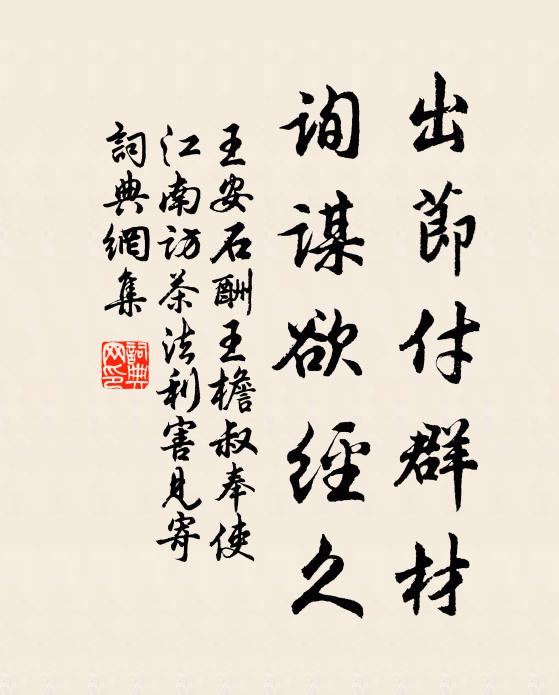 出節付群材
詢謀欲經久
王安石酬王檐叔奉使
江南访茶法利害見寄
詞典網集
詞典网印